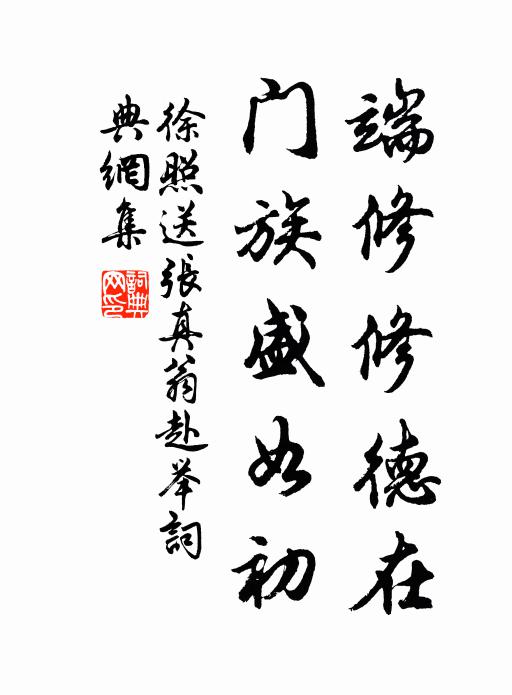 端修修德在
门族盛如初
徐照送張真翁赴举詞
典網集
詞典网印